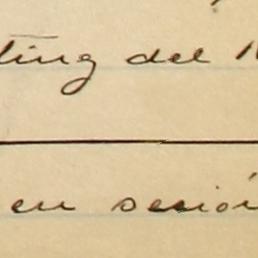 ting del 1
en sesión